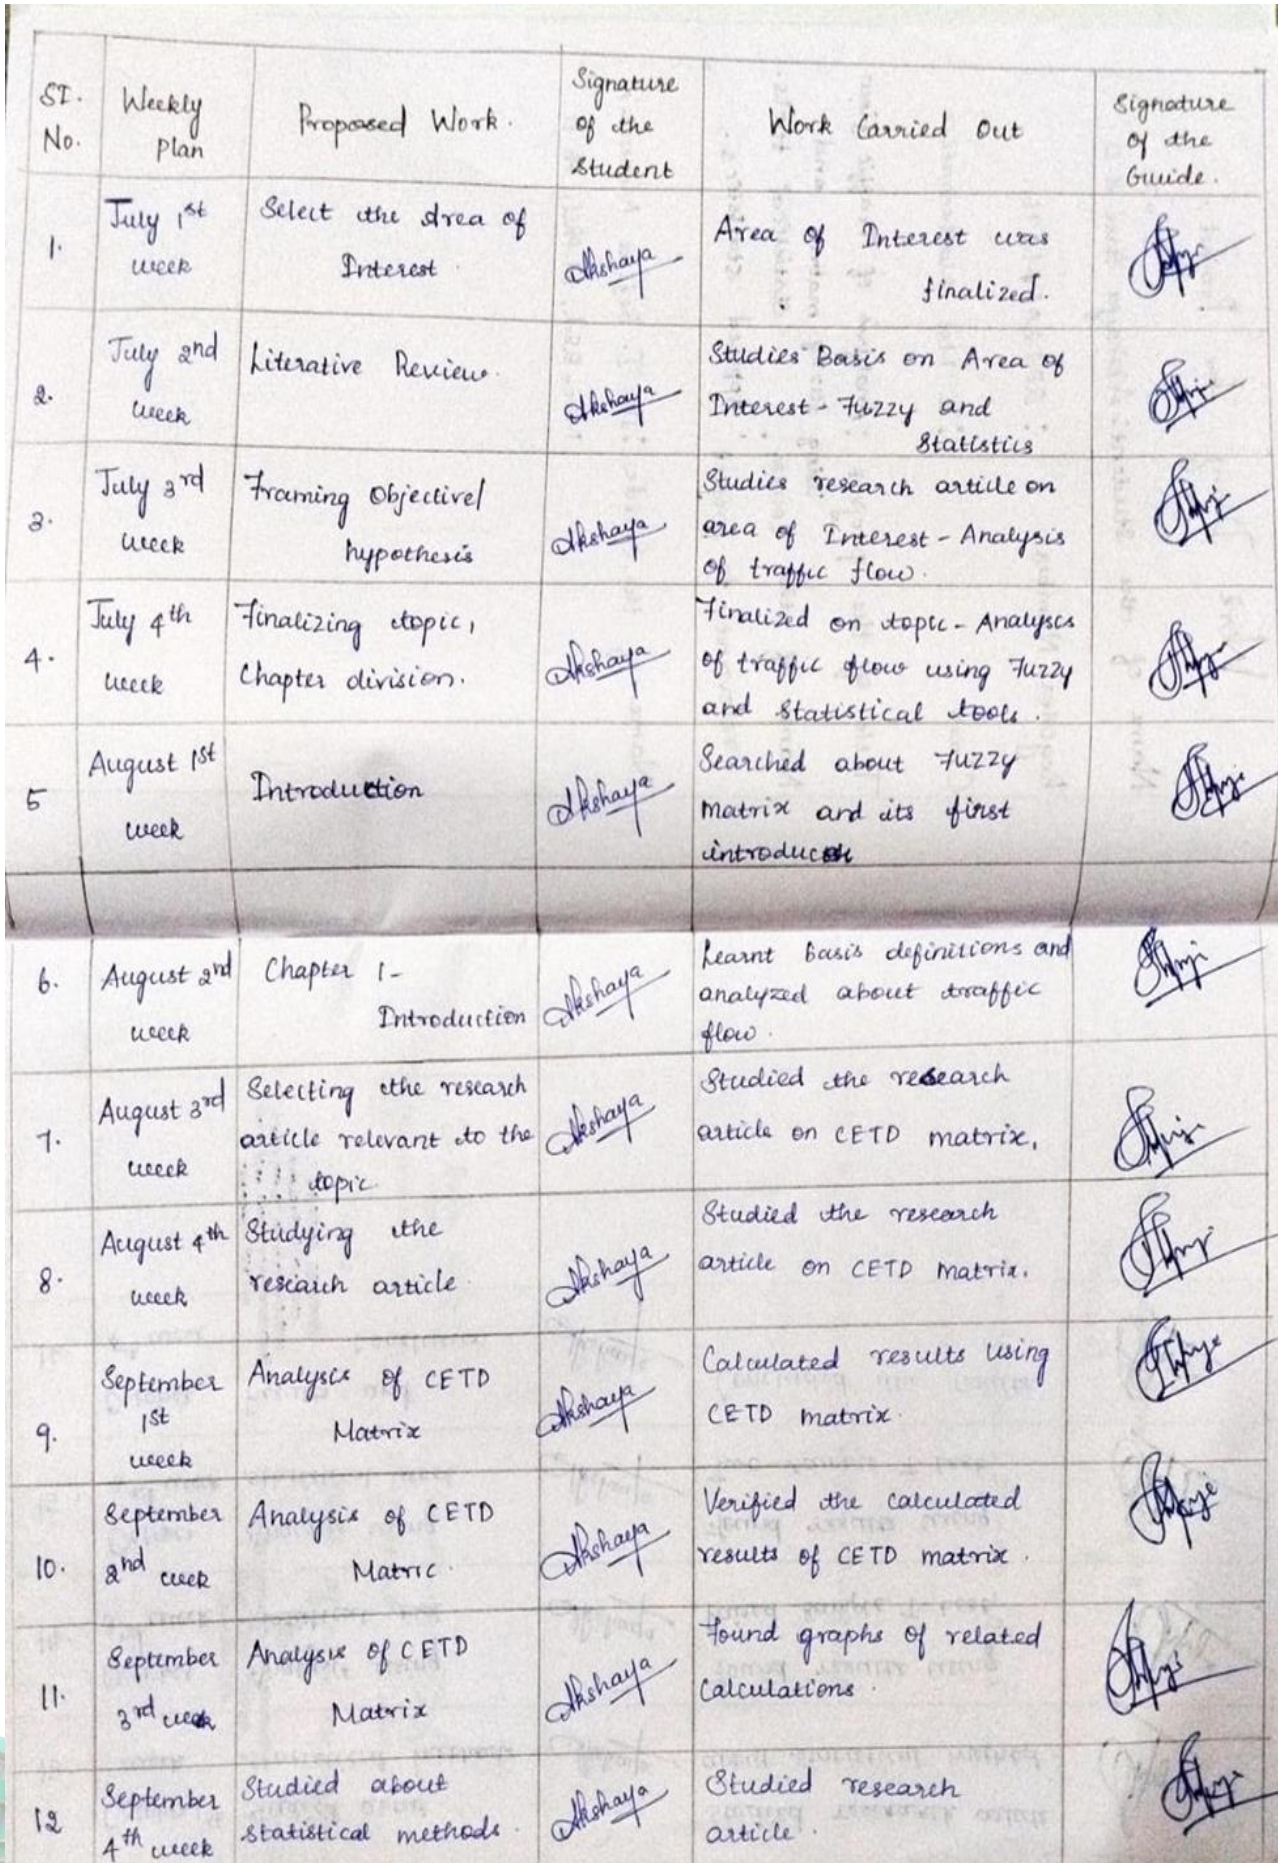 SI. No.
Weekly Plan
Proposed Work.
Signature of the Student
Work Carried Out
Signature of the Guide.
1.
July 1st week
Select the Area of
Interest.
Akshaya
Area of Interest was
finalized.
2.
July 2nd week
Literative Review.
Akshaya
Studies Basis on Area of
Interest - Fuzzy and
Statistics
3.
July 3rd week
Framing Objective/
hypothesis
Akshaya
Studies research article on
area of Interest - Analysis
of traffic flow.
4.
July 4th week
Finalizing topic,
Chapter division.
Akshaya
Finalized on topic - Analysis
of traffic flow using Fuzzy
and Statistical tools.
5
August 1st week
Introduction
Akshaya
Searched about Fuzzy
matrix and its first
6.
August 2nd week
Chapter 1-
Introduction
Akshaya
Learnt Basis definitions and
analyzed about traffic
flow.
7.
August 3rd week
Selecting the research
article relevant to the
topic.
Akshaya
Studied the research
article on CETD matrix,
8.
August 4th week
Studying the
research article.
Akshaya
Studied the research
article on CETD matrix.
9.
September 1st week
Analysis of CETD
Matrix
Akshaya
Calculated results using
CETD matrix.
10.
September 2nd week
Analysis of CETD
Matric.
Akshaya
Verified the calculated
results of CETD matrix.
11.
September 3rd week
Analysis of CETD
Matrix
Akshaya
Found graphs of related
calculations.
12
September 4th week
Studied about
Statistical methods.
Akshaya
Studied research
article.